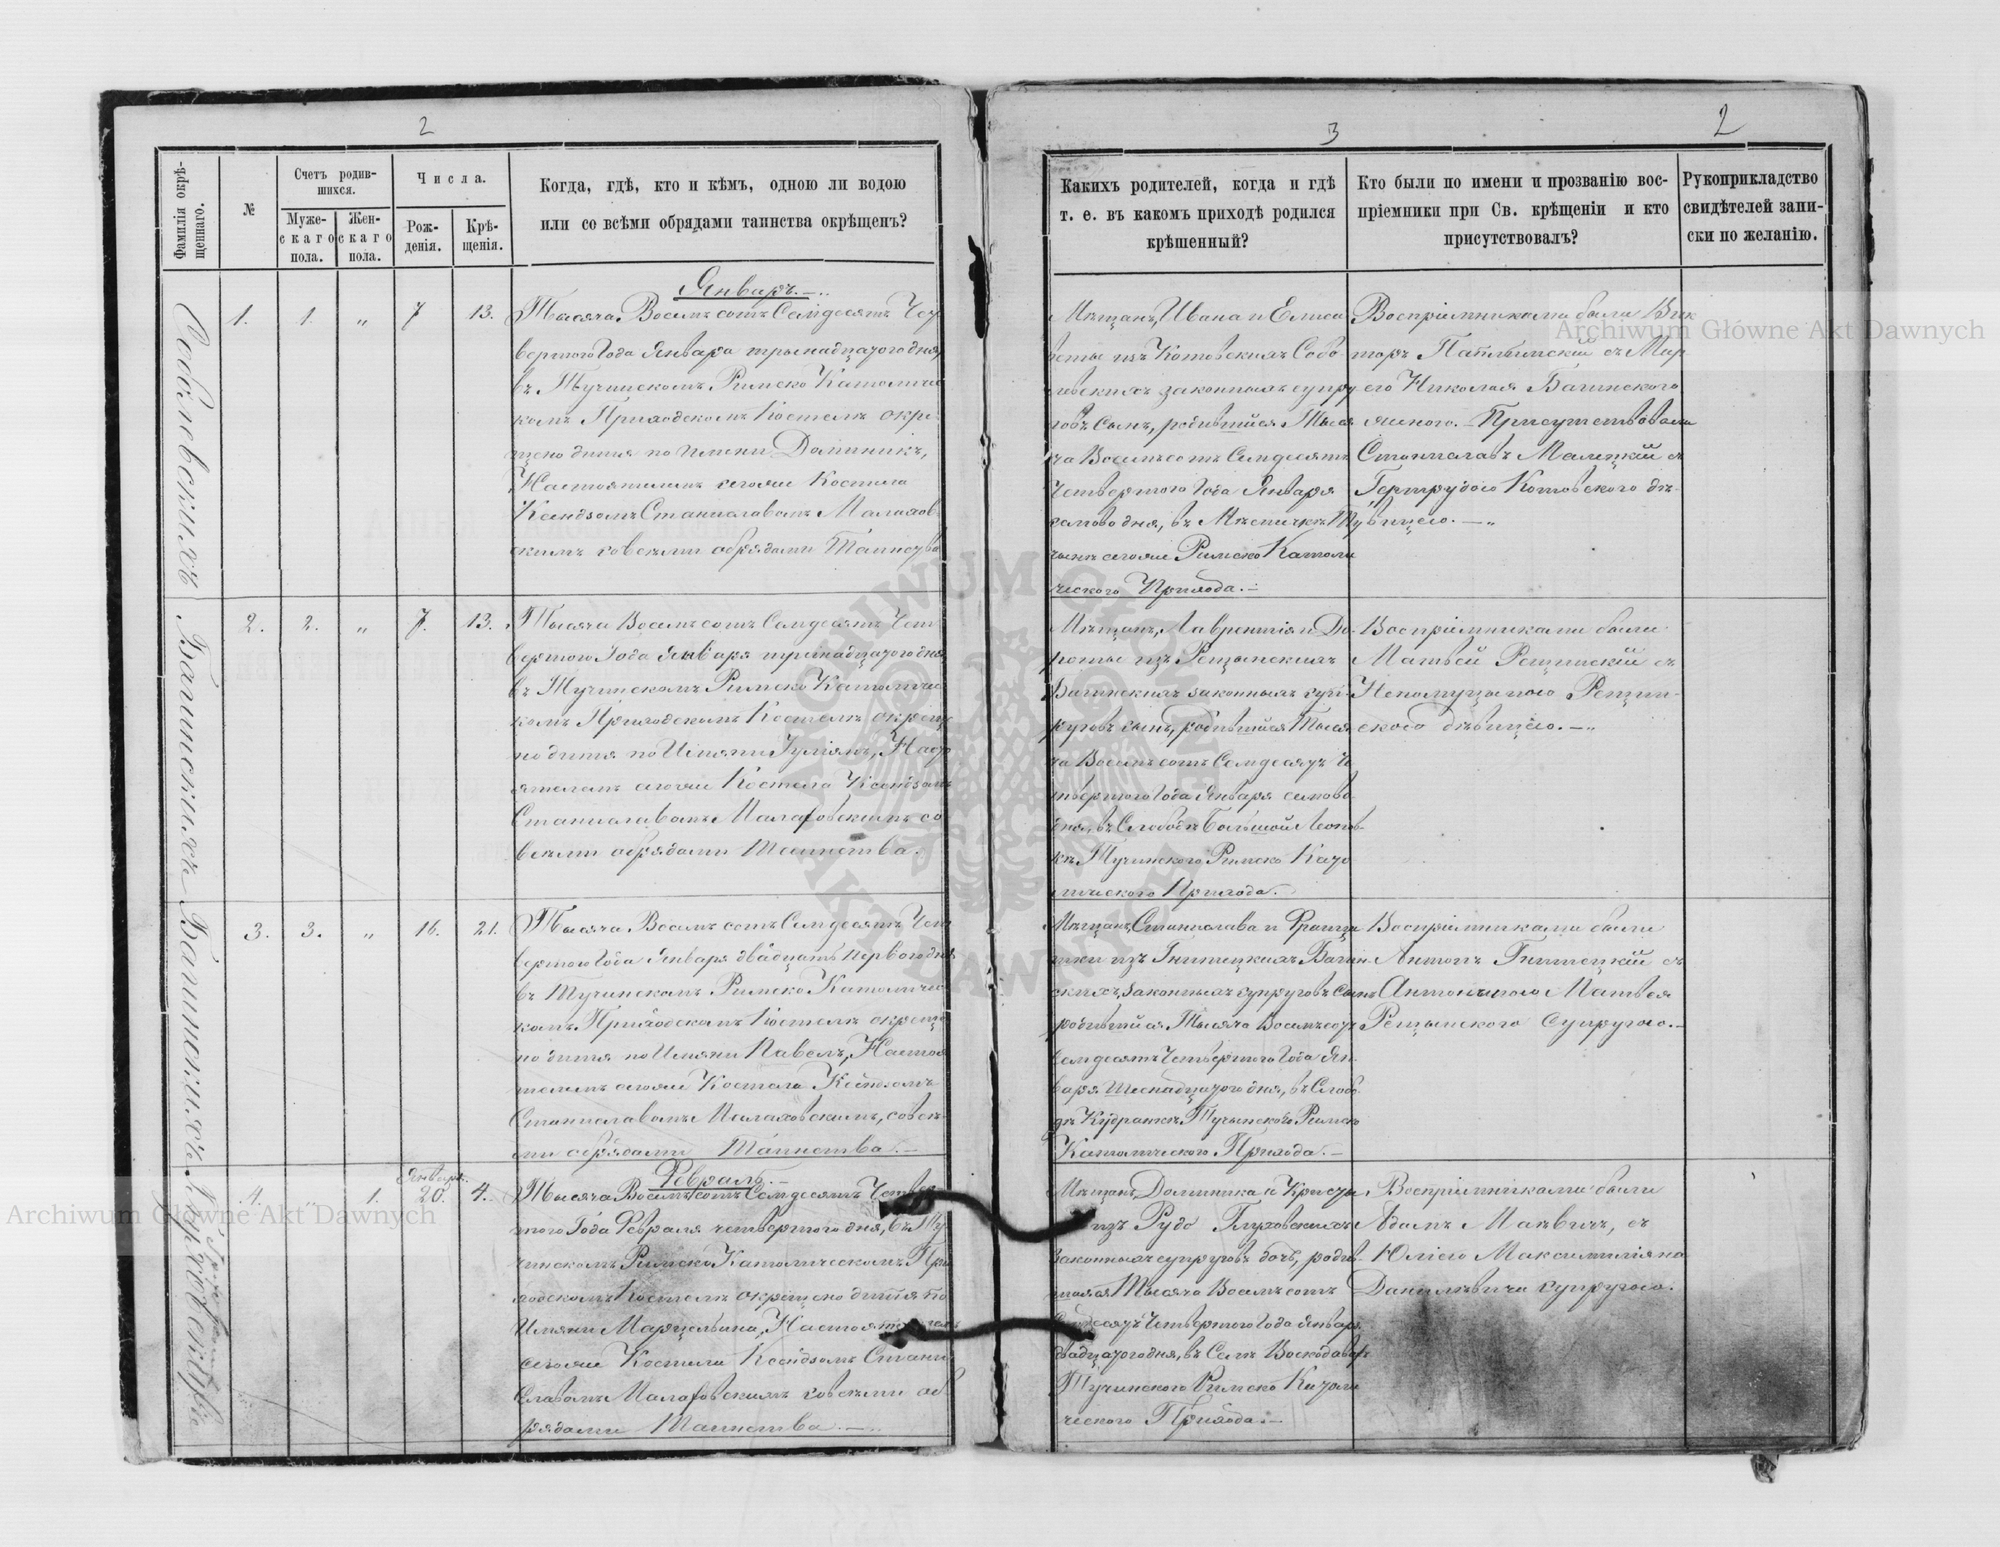 2
Фамилія окрѣ-
щеннаго.
№
Счетъ родив-
шихся.
Муже-
скаго
пола.
Жен-
скаго
пола.
Числа.
Рож-
денія.
Крѣ-
щенія.
Когда, гдѣ, кто и кѣмъ, одною ли водою
или со всѣми обрядами таинства окрѣщенъ?
Январь.
1. 1. „ 7 13.
Тысяча Восемъ сотъ Семдесятъ Чет
вертого Года Января тринадцатого дня,
въ Тучинскомъ Римско Католичес
комъ Приходскомъ Костелѣ окре
щено дитя по имени Доминикъ,
Настоятелемъ сегоже Костела
Ксендзомъ Станиславомъ Малахов
скимъ совсѣми обрядами Таинства
Багинскихъ
2. 2. „ 7. 13.
Тысяча Восемъ сотъ Семдесятъ Чет
вертого Года Января тринадцатого дня
въ Тучинскомъ Римско Католичес
комъ Приходскомъ Костелѣ окреще
но дитя по Имяни Іуліянъ, Насто
ятелемъ сегоже Костела Ксендзомъ
Станиславомъ Малаховскимъ со
всѣми обрядами Таинства.
Багинскихъ
3. 3. „ 16. 21.
Тысяча Восемъ сотъ Семдесятъ Чет
вертого Года Января двадцать первого дня
въ Тучинскомъ Римско Католичес
комъ Приходскомъ Костелѣ окреще
но дитя по Имяни Павелъ, Настоя
телемъ сегоже Костела Ксендзомъ
Станиславомъ Малаховскимъ, совсѣ-
ми обрядами Таинства.
Февраль.
4. „ 1. Января 20. 4.
Тысяча Восемъ сотъ Семдесятъ Четвер
того Года Февраля четвертого дня, въ Ту
чинскомъ Римско Католическомъ При
ходскомъ Костелѣ окрещено дитя по
Имяни Марцельина, Настоятелемъ
сегоже Костела Ксендзомъ Стани
славомъ Малаховскимъ совсѣми об
рядами Таинства.
3
2
Какихъ родителей, когда и гдѣ
т. е. въ какомъ приходѣ родился
крѣшенный?
Кто были по имени и прозванію вос-
пріемники при Св. крѣщеніи и кто
присутствовалъ?
Рукоприкладство
свидѣтелей запи-
ски по желанію.
Мѣщанъ, Ивана и Елиса
веты изъ Котовскихъ Собо
левскихъ законныхъ супру
говъ Сынъ, родившійся Тыся
ча Восемъ сотъ Семдесятъ
Четвертого Года Января
семого дня, въ Мѣстечкѣ Ту
чинѣ сегоже Римско Католи
ческого Прихода.
Воспріемниками были Вик
торъ с Мар
Николая Багинского
Присутствовали
Станиславъ Малецкій съ
Гертрудою Котовского дѣ-
вицею.
Мѣщанъ, Лаврентія и До-
роты изъ Рещинскихъ
Багинскихъ законныхъ суп-
руговъ сынъ, родившійся Тыся
ча Восемъ сотъ Семдесятъ Че
твертого Года Января семого
дня, въ Слободѣ Большой Леонов
кѣ, Тучинского Римско Като
лического Прихода.
Воспріемниками были
Матвей Рещинскій съ
Непомуценою Рещин-
ского дѣвицею.
Мѣщанъ, Станислава и Франци
шки изъ Гнитецкихъ Багин-
скихъ, законныхъ супруговъ Сынъ
родившійся Тысяча Восемъ сотъ
семдесятъ Четвертого Года Ян
варя Шеснадцатого дня, въ Слобо
дѣ Кудранкѣ Тучинского Римско
Католического Прихода.
Воспріемниками были
Антонъ Гнитецкій съ
Антониною Матвея
Рещинского Супругою.
Мѣщанъ, Доминика и
изъ Рудо Глуховскихъ
законныхъ супруговъ дочь, родив-
шаяся Тысяча Восемъ сотъ
Семдесятъ Четвертого Года Января
двадцатого дня, въ Селѣ Воскодавахъ
Тучинского Римско Католи
ческого Прихода.
Воспріемниками были
Адамъ Маевичъ, съ
Юліею Максимиліяна
Данилевича супругою.
Archiwum Główne Akt Dawnych
Archiwum Główne Akt Dawnych
ARCHIWUM GŁÓWNE AKT DAWNYCH